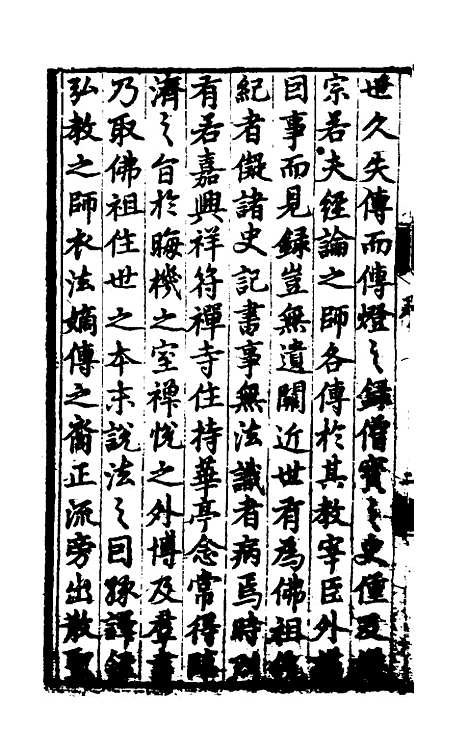 世久失傳而傳燈之録僧寳之史僅及
宗若夫経論之師各傳於其教宰臣外
目事而見録豈無遺闕近世有為佛祖
紀者儗諸史記書事無法識者病焉時
有若嘉興祥符禪寺住持華亭念常得
濟之旨於晦機之室禅恱之外博及群書
乃取佛祖住世之本末説法之目縁譯
弘教之師衣法嫡傳之裔正流旁出散